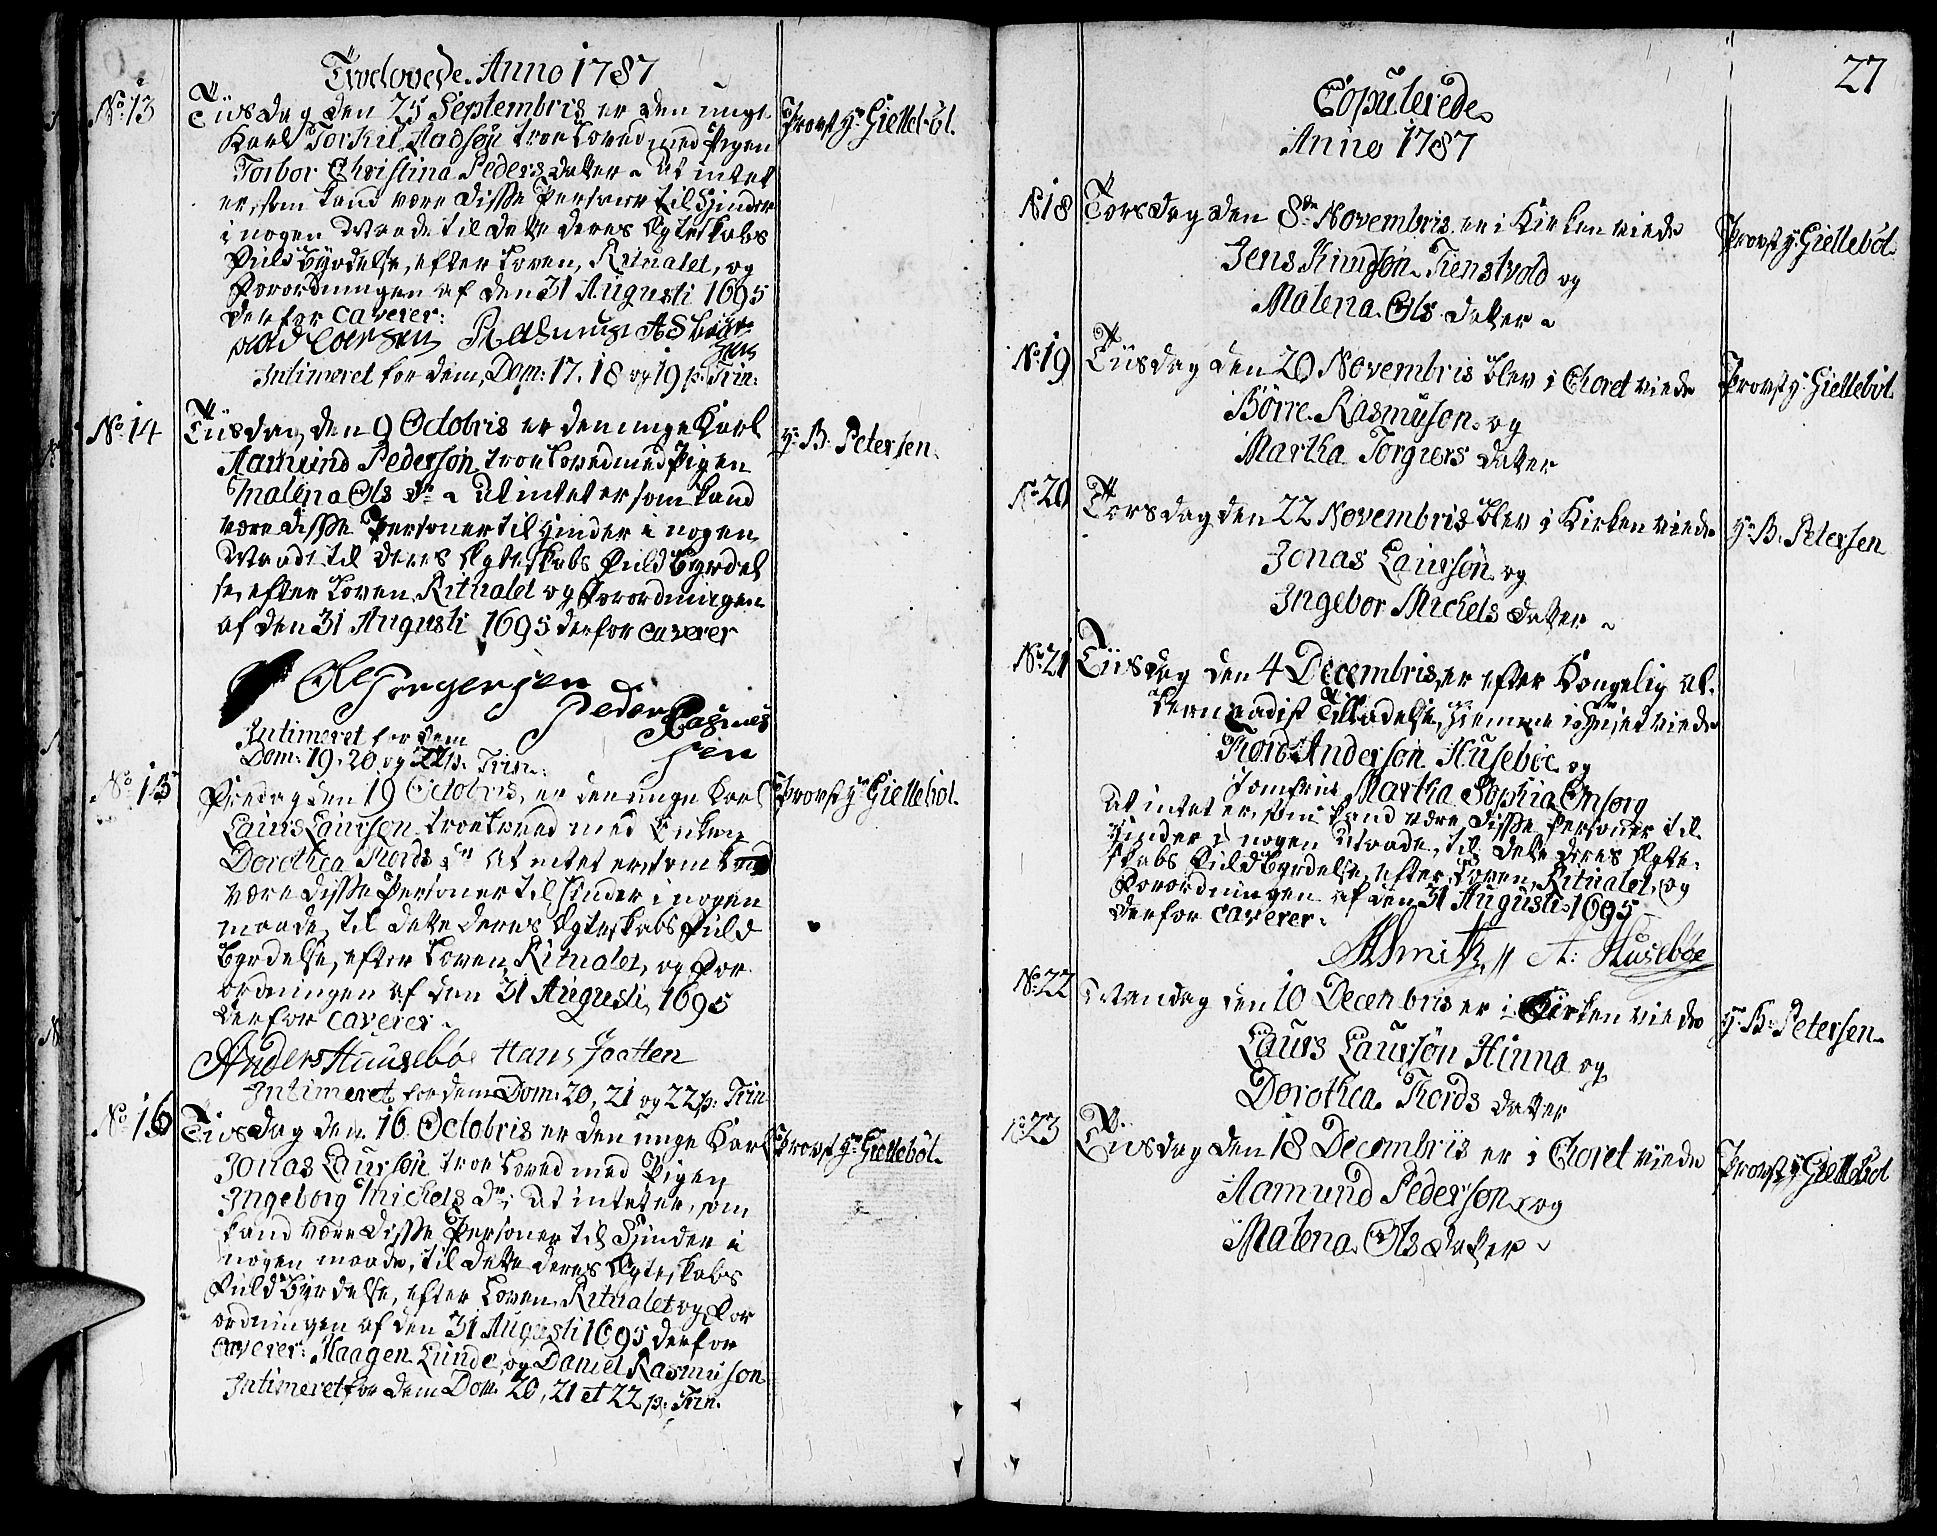 Troelovede. Anno 1787
No. 13
Tiisdag den 25 Septembris er den unge
Karl Torkil Aadsøn troeloved med Pigen
Torbor Christina Peders Datter at intet
er, som kand være disse Personer til Hinder
i nogen Maade til dette deres Ægteskabs
Fuldbyrdelse, efter Loven, Ritualet, og
Forordningen af den 31 Augusti 1695
derfor caverer:
Rasmus
Intimeret for dem, Dom: 17. 18 og 19 p. Trin:
Provst Hr. Giellebøl.
No. 14
Tiisdag den 9 Octobris er den unge Karl
Aamund Pedersøn troeloved med Pigen
Malena Ols Dr. at intet er som kand
være disse Personer til Hinder i nogen
Maade til deres Ægteskabs Fuldbyrdel
se, efter Loven, Ritualet og Forordningen
af den 31 Augusti 1695 derfor caverer
Ole Torgersen
Peder Rasmus
sen
Intimeret for dem
Dom: 19. 20 og 21 p. Trin:
Hr. B. Petersen.
No. 15
Fredag den 19 Octobris, er den unge Karl
Laurs Laursøn troeloved med Enken
Dorothea Tords Dr. at intet er, som kand
være disse Personer til Hinder i nogen
maade, til dette deres Ægteskabs Fuld
byrdelse, efter Loven, Ritualet, og For
ordningen af den 31 Augusti, 1695
derfor caverer.
Anders Huusebøe Hans Jaatten
Intimeret for dem Dom: 20, 21 og 22 p: Trin
Provst Hr. Giellebøl.
No. 16
Tiisdag den 16 Octobris er den unge Karl
Jonas Laursøn troeloved med Pigen
Ingeborg Michels Dr; at intet er, som
kand være disse Personer til Hinder i
nogen maade, til dette deres Ægteskabs
Fuldbyrdelse, efter Loven, Ritualet og For
ordningen af den 31 Augusti 1695 derfor
caverer: Haagen Lunde og Daniel Rasmuson
Intimeret for dem Dom. 20, 21 et 22 p: Trin.
Provst Hr. Giellebøl.
27
Copulerede
Anno 1787
N18
Torsdag den 8de Novembris er i Kirken viede
Jens Knudsøn Tienstvold og
Malena Ols Datter
Provst Hr. Giellebøl.
No. 19
Tiisdag den 20 Novembris blev i Choret viede
Børre Rasmuson og
Martha Torgiers Datter
Provst Hr. Giellebøl.
No. 20
Torsdag den 22 Novembris blev i Kirken viede
Jonas Laursøn og
Ingebor Michels Datter
Hr. B. Petersen
No. 21
Tiisdag den 4 Decembris, er efter Kongelig al-
lernaadigst Tilladelse, Hiemme i Huuset viede
Tord Anderson Husebøe og
Jomfrue Martha Sophia Onsorg
At intet er, som kand være disse Personer til
Hinder i nogen Maade, til dette deres Ægte-
skabs Fuldbyrdelse, efter Loven, Ritualet, og
Forordningen af den 31 Augusti 1695
derfor caverer.
Smith A: Husebøe
No. 22
Mandag den 10 Decembris er i Kirken viede
Laurs Laursøn Hinna og
Dorothea Tords Datter
Hr. B. Petersen.
No. 23
Tiisdag den 18 Decembris er i Choret viede
Aamund Pederson og
Malena Ols Datter
Provst Hr. Giellebøl